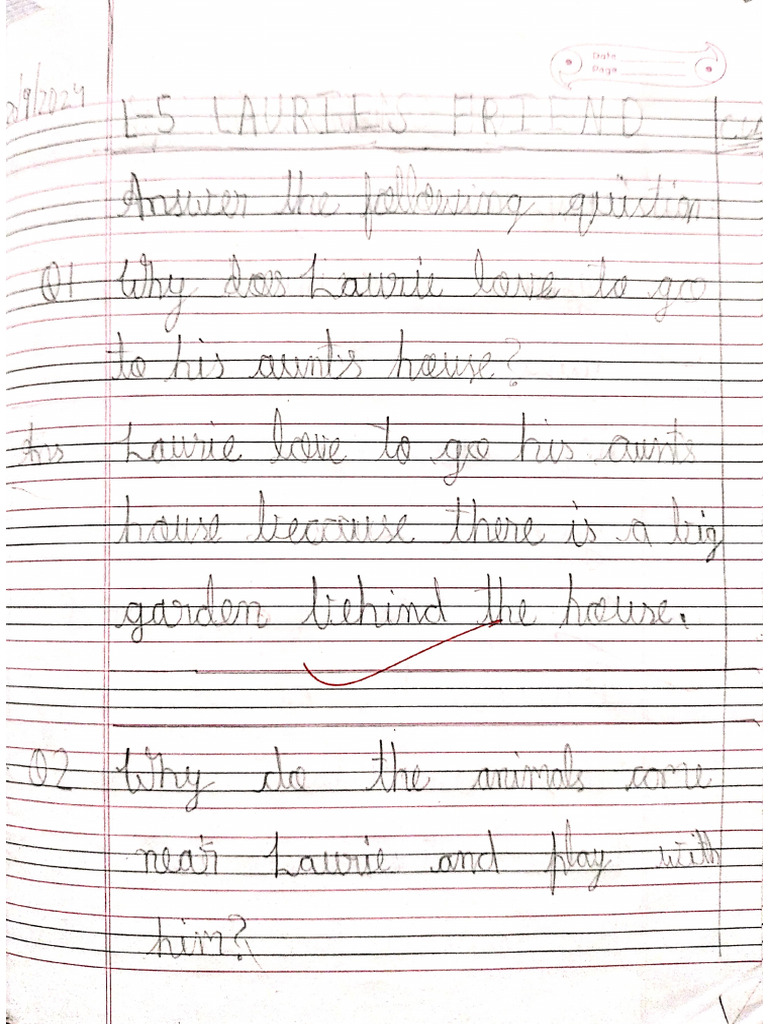 Date
Page
/9/2024
L-5 LAURIE'S FRIEND
Answer the following
Q1 Why does Laurie love to go
to his aunt's house?
Ans Laurie love to go his aunt's
house because there is a big
garden behind the house.
Q2 Why do the animals come
near Laurie and play with
him?